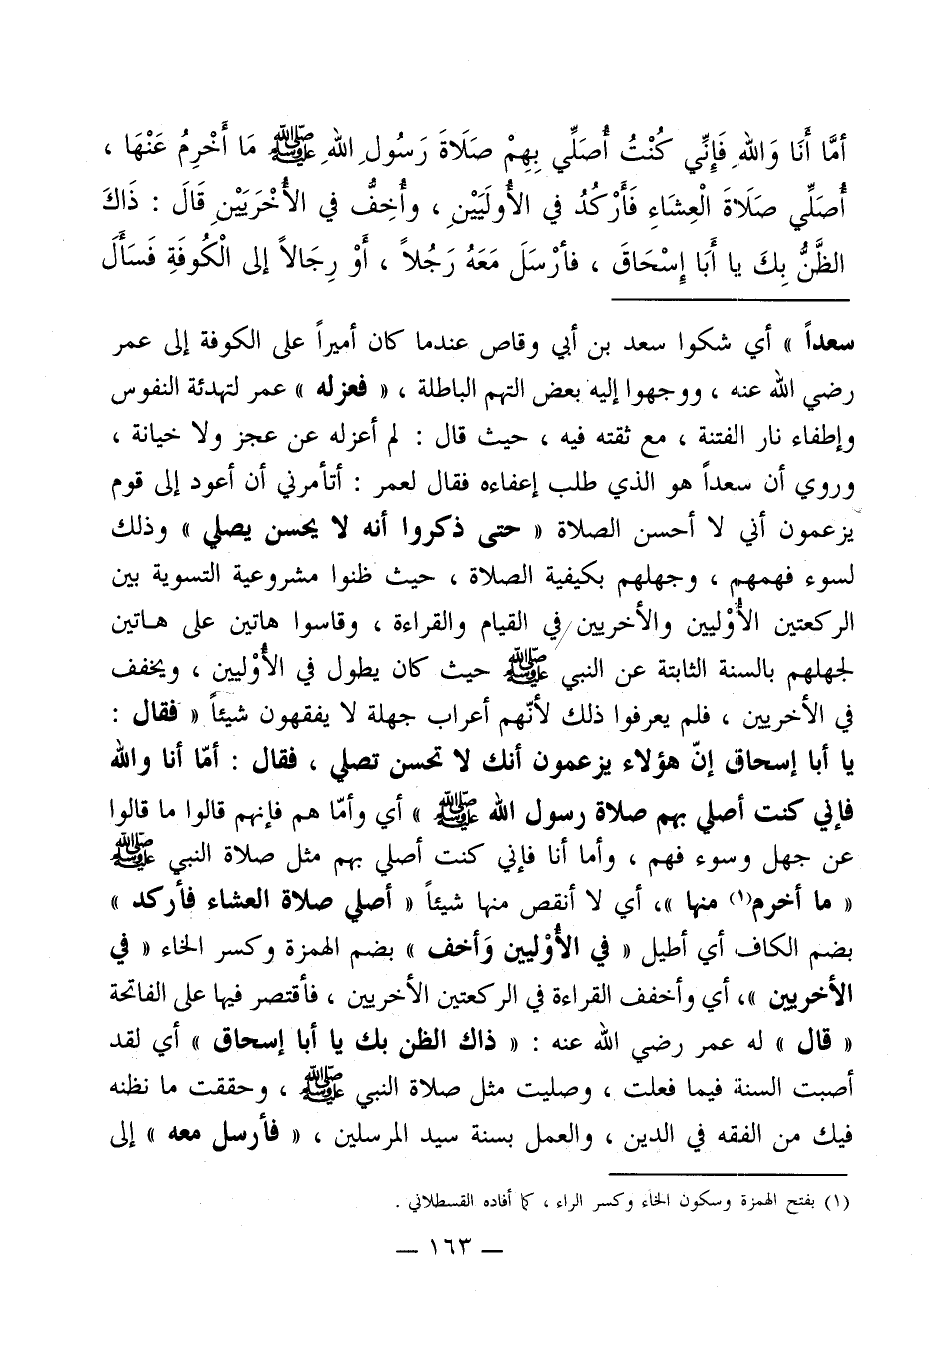 أمَّا أَنَا وَاللهِ فَإِنِّي كُنْتُ أُصَلِّي بِهِمْ صَلَاةَ رَسُولِ اللهِ ﷺ مَا أَخْرِمُ عَنْهَا ،
أُصَلِّي صَلَاةَ الْعِشَاءِ فَأَرْكُدُ في الأُولَيَيْنِ ، وأُخِفُّ في الأُخْرَيَيْنِ قَالَ : ذَاكَ
الظَّنُّ بِكَ يا أَبَا إِسْحَاقَ ، فأرْسَلَ مَعَهُ رَجُلاً ، أَوْ رِجَالاً إلى الْكُوفَةِ فَسَأَلَ
سعداً » أي شكوا سعد بن أبي وقاص عندما كان أميراً على الكوفة إلى عمر
رضي الله عنه ، ووجهوا إليه بعض التهم الباطلة ، « فعزله » عمر لتهدئة النفوس
وإطفاء نار الفتنة ، مع ثقته فيه ، حيث قال : لم أعزله عن عجز ولا خيانة ،
وروي أن سعداً هو الذي طلب إعفاءه فقال لعمر : أتأمرني أن أعود إلى قوم
يزعمون أني لا أحسن الصلاة « حتى ذكروا أنه لا يحسن يصلي » وذلك
لسوء فهمهم ، وجهلهم بكيفية الصلاة ، حيث ظنوا مشروعية التسوية بين
الركعتين الأُوْليين والأخريين في القيام والقراءة ، وقاسوا هاتين على هـاتين
لجهلهم بالسنة الثابتة عن النبي ﷺ حيث كان يطول في الأُوْليين ، ويخفف
في الأخريين ، فلم يعرفوا ذلك لأنّهم أعراب جهلة لا يفقهون شيئاً « فقال :
يا أبا إسحاق إنّ هؤلاء يزعمون أنك لا تحسن تصلي ، فقال : أمّا أنا والله
فإني كنت أصلي بهم صلاة رسول الله ﷺ » أي وأمّا هم فإنهم قالوا ما قالوا
عن جهل وسوء فهم ، وأما أنا فإني كنت أصلي بهم مثل صلاة النبي ﷺ
« ما أخرم(١) منها »، أي لا أنقص منها شيئاً « أصلي صلاة العشاء فأركد »
بضم الكاف أي أطيل « في الأُوْليين وَأخف » بضم الهمزة وكسر الخاء « في
الأخريين »، أي وأخفف القراءة في الركعتين الأخريين ، فأقتصر فيها على الفاتحة
« قال » له عمر رضي الله عنه : « ذاك الظن بك يا أبا إسحاق » أي لقد
أصبت السنة فيما فعلت ، وصليت مثل صلاة النبي ﷺ ، وحققت ما نظنه
فيك من الفقه في الدين ، والعمل بسنة سيد المرسلين ، « فأرسل معه » إلى
(١) بفتح الهمزة وسكون الخاء وكسر الراء ، كما أفاده القسطلاني .
— ١٦٣ —